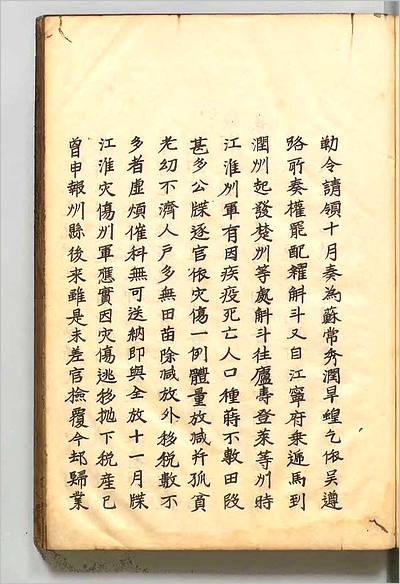 勑令請領十月奏為蘇常秀潤旱蝗乞依吳遵
路所奏權罷配糴斛斗又自江寧府乘遞馬到
潤州起發楚州等處斛斗往廬壽登萊等州時
江淮州軍有因疾疫死亡人口種蒔不敷田段
甚多公牒逐官依灾傷一例體量放減并孤貧
老幼不濟人户多無田苗除減放外移税數不
多者虛煩催科無可送納即與全放十一月牒
江淮灾傷州軍應實因灾傷逃移抛下税産已
曾申報州縣後来雖是未差官撿覆今却歸業